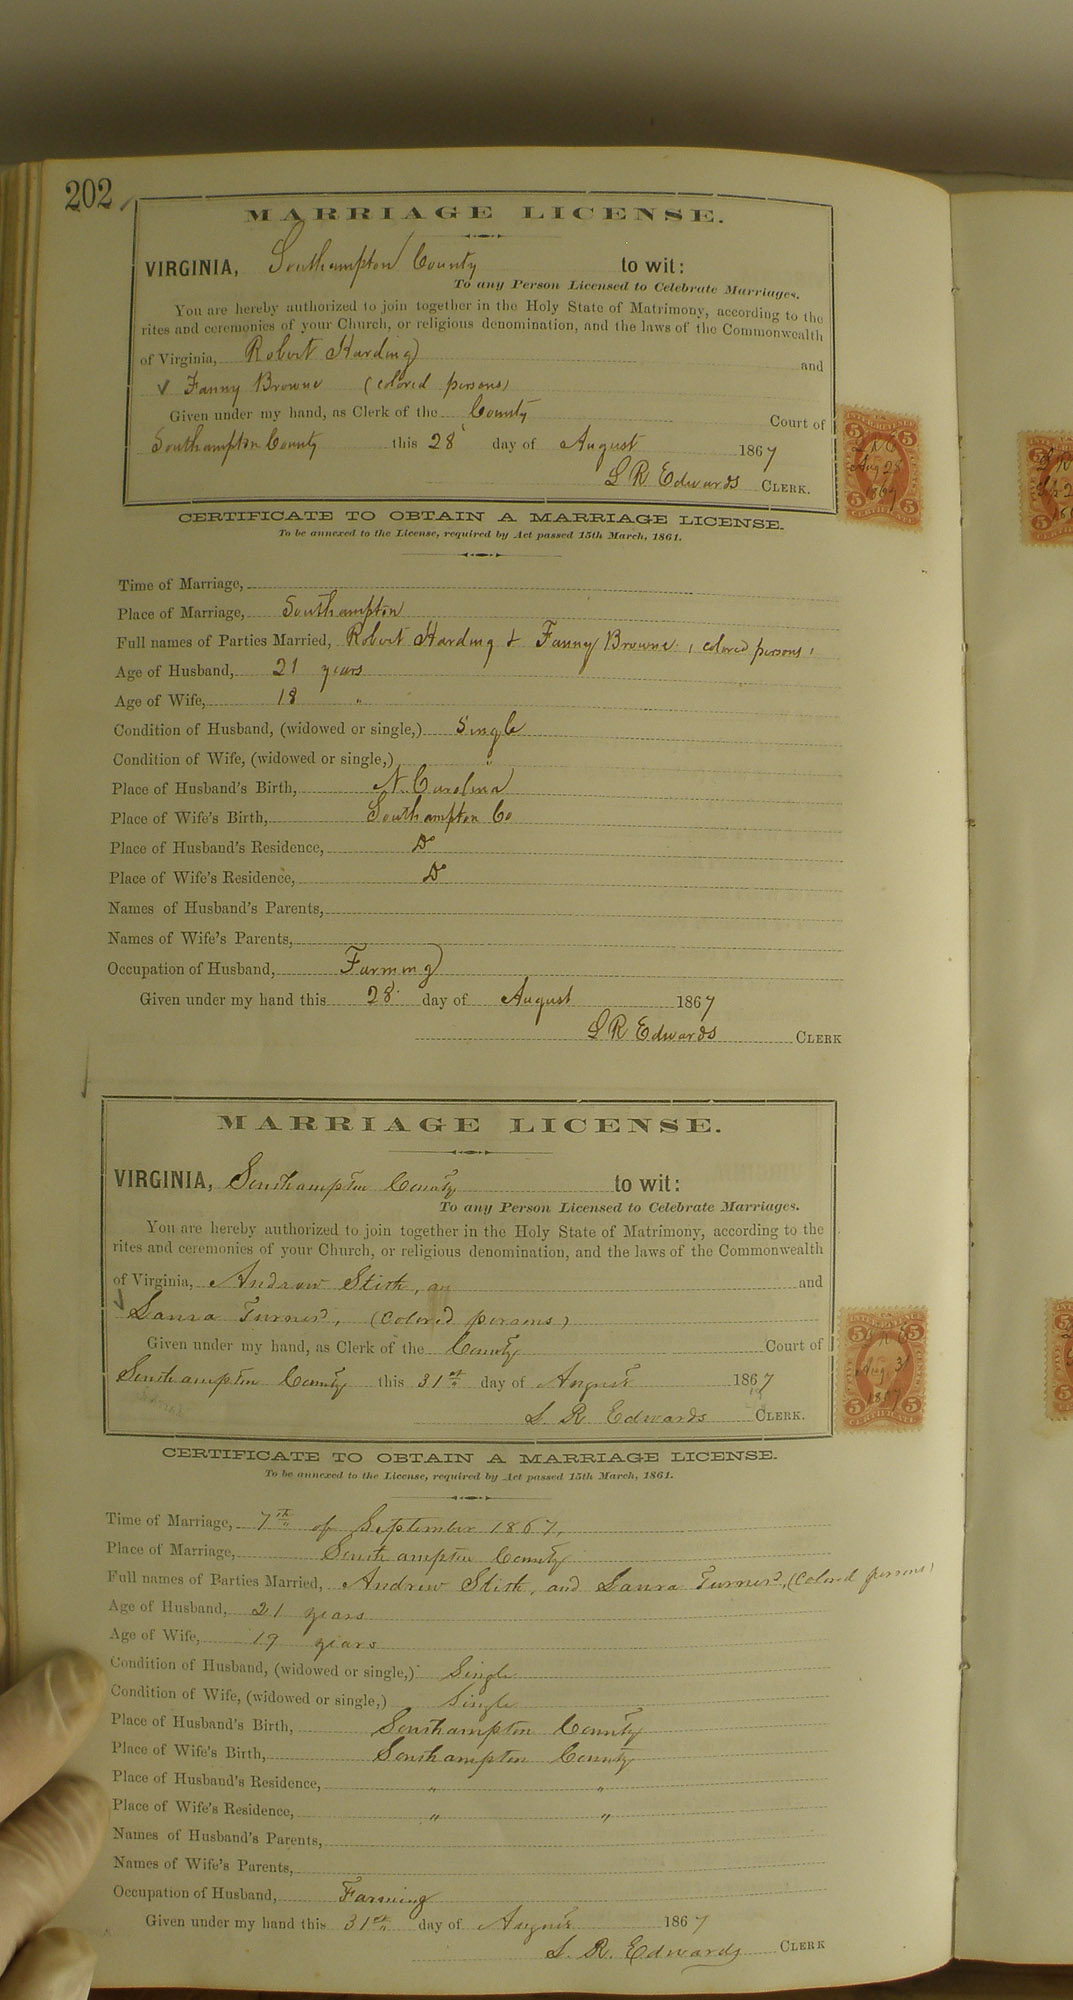 202
MARRIAGE LICENSE.
VIRGINIA, Southampton County to wit:
To any Person Licensed to Celebrate Marriages.
You are hereby authorized to join together in the Holy State of Matrimony, according to the
rites and ceremonies of your Church, or religious denomination, and the laws of the Commonwealth
of Virginia, Robert Harding and
✓ Fanny Browne (colored persons)
Given under my hand, as Clerk of the County Court of
Southampton County this 28 day of August 1867
L R Edwards CLERK.
5 5
L R E
Aug 28
1867
5 5
CERTIFICATE
CERTIFICATE TO OBTAIN A MARRIAGE LICENSE.
To be annexed to the License, required by Act passed 15th March, 1861.
Time of Marriage,
Place of Marriage, Southampton
Full names of Parties Married, Robert Harding & Fanny Browne (colored persons)
Age of Husband, 21 years
Age of Wife, 18 "
Condition of Husband, (widowed or single,) Single
Condition of Wife, (widowed or single,) "
Place of Husband's Birth, N. Carolina
Place of Wife's Birth, Southampton Co
Place of Husband's Residence, Do
Place of Wife's Residence, Do
Names of Husband's Parents,
Names of Wife's Parents,
Occupation of Husband, Farming
Given under my hand this 28 day of August 1867
L R Edwards CLERK
MARRIAGE LICENSE.
VIRGINIA, Southampton County to wit:
To any Person Licensed to Celebrate Marriages.
You are hereby authorized to join together in the Holy State of Matrimony, according to the
rites and ceremonies of your Church, or religious denomination, and the laws of the Commonwealth
of Virginia, Andrew Stith, an and
✓ Laura Turner, (colored persons)
Given under my hand, as Clerk of the County Court of
Southampton County this 31st day of August 1867
L. R. Edwards CLERK.
5 5
Aug 31
1867
5 5
CERTIFICATE
CERTIFICATE TO OBTAIN A MARRIAGE LICENSE.
To be annexed to the License, required by Act passed 15th March, 1861.
Time of Marriage, 7th of September 1867,
Place of Marriage, Southampton County
Full names of Parties Married, Andrew Stith, and Laura Turner, (Colored persons)
Age of Husband, 21 years
Age of Wife, 19 years
Condition of Husband, (widowed or single,) Single
Condition of Wife, (widowed or single,) Single
Place of Husband's Birth, Southampton County
Place of Wife's Birth, Southampton County
Place of Husband's Residence, " "
Place of Wife's Residence, " "
Names of Husband's Parents,
Names of Wife's Parents,
Occupation of Husband, Farming
Given under my hand this 31st day of August 1867
L. R. Edwards CLERK